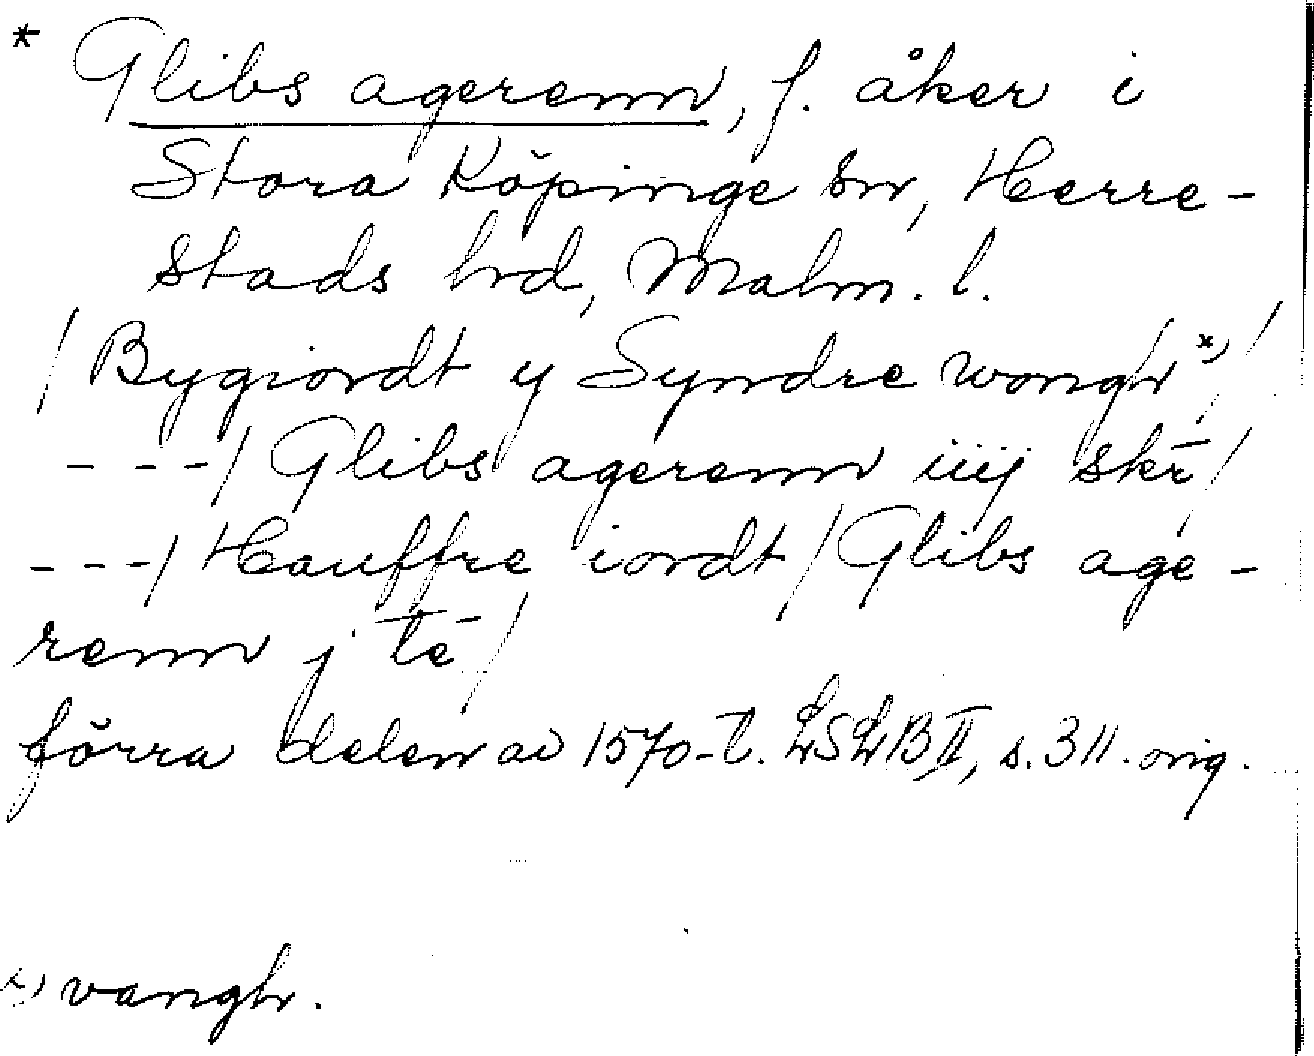 * Glibs agerenn, f. åker i
Stora Köpinge sn, Herre-
stads hd, Malm. l.
/ Bygiordt y Syndre wongh *) /
- - - / Glibs agerenn iiij skr̄ /
- - - / Hauffre iordt / Glibs age-
renn j tē /
förra delen av 1570-t. LSLB II, s. 311. orig.
*) vangh.